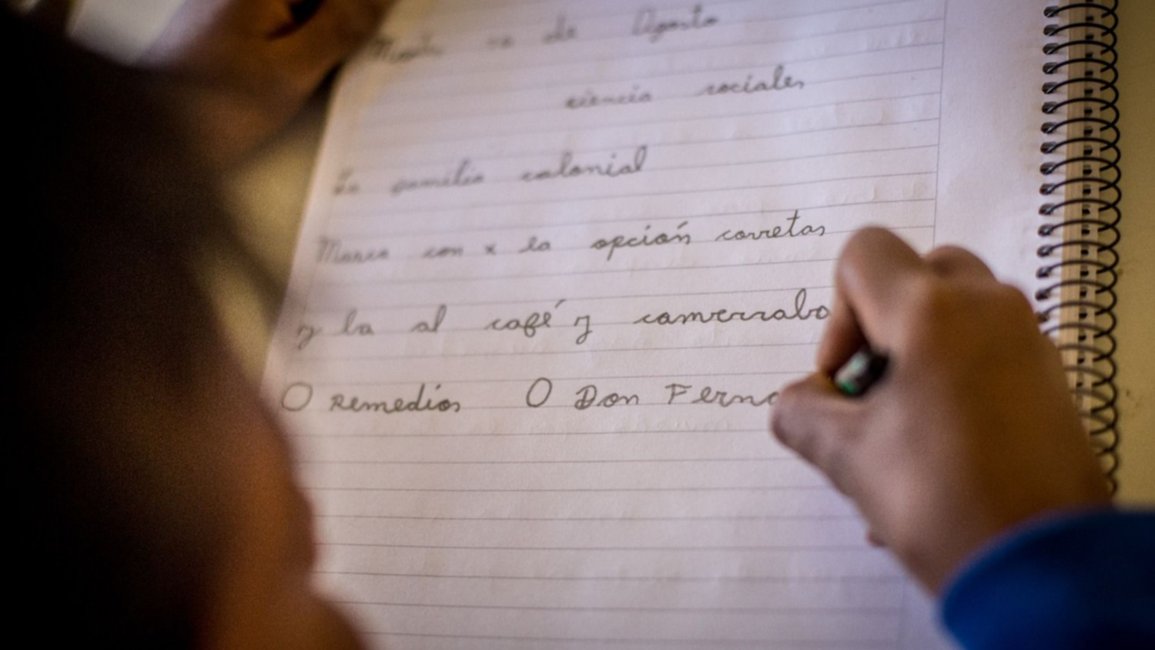 de Agosto
ciencia sociales
La familia colonial
Marca con x la opción corretas
y la al café y
O Remedios O Don Ferna